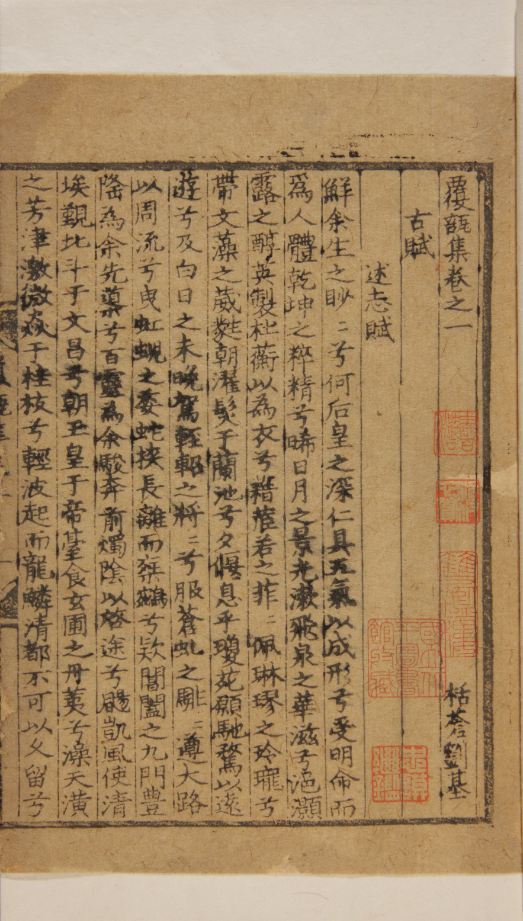 覆瓿集卷之一
括蒼劉基
古賦
述志賦
鮮余生之眇〻兮何后皇之深仁具五氣以成形兮受明命而
為人體乾坤之粹精兮晞日月之景光漱飛泉之華滋兮浥灝
露之醇英製杜蘅以為衣兮藉菌若之菲〻佩琳璆之玲瓏兮
帶文藻之葳蕤朝濯髮于蘭池兮夕偃息乎瓊苑願馳騖以遠
遊兮及白日之未晚駕輕軺之將〻兮服蒼虬之騑〻遵大路
以周流兮曳虹蜺之委蛇挾長離而乘鷁兮款閶闔之九門豐
隆為余先導兮百靈為余駿奔前燭陰以啓途兮颺凱風使清
埃觀北斗于文昌兮朝玉皇于帝臺食玄圃之丹荑兮澡天潢
之芳津激微焱于桂枝兮輕波起而龍鱗清都不可以久留兮